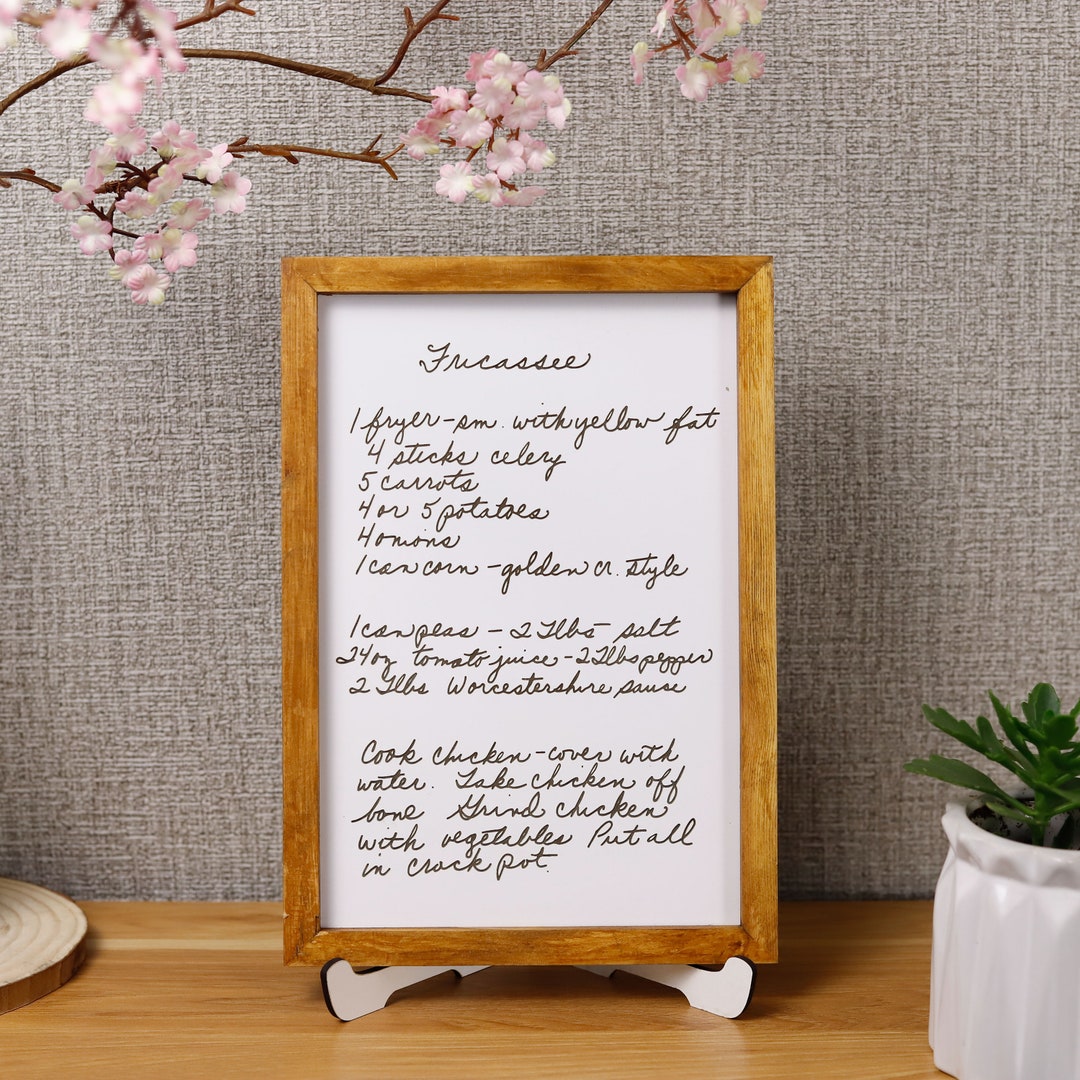 Fricassee
1 fryer - sm. with yellow fat
4 sticks celery
5 carrots
4 or 5 potatoes
4 onions
1 can corn - golden cr. style
1 can peas - 2 Tlbs salt
24 oz tomato juice - 2 Tlbs pepper
2 Tlbs Worcestershire sause
Cook chicken - cover with
water. Take chicken off
bone Grind chicken
with vegetables Put all
in crock pot.